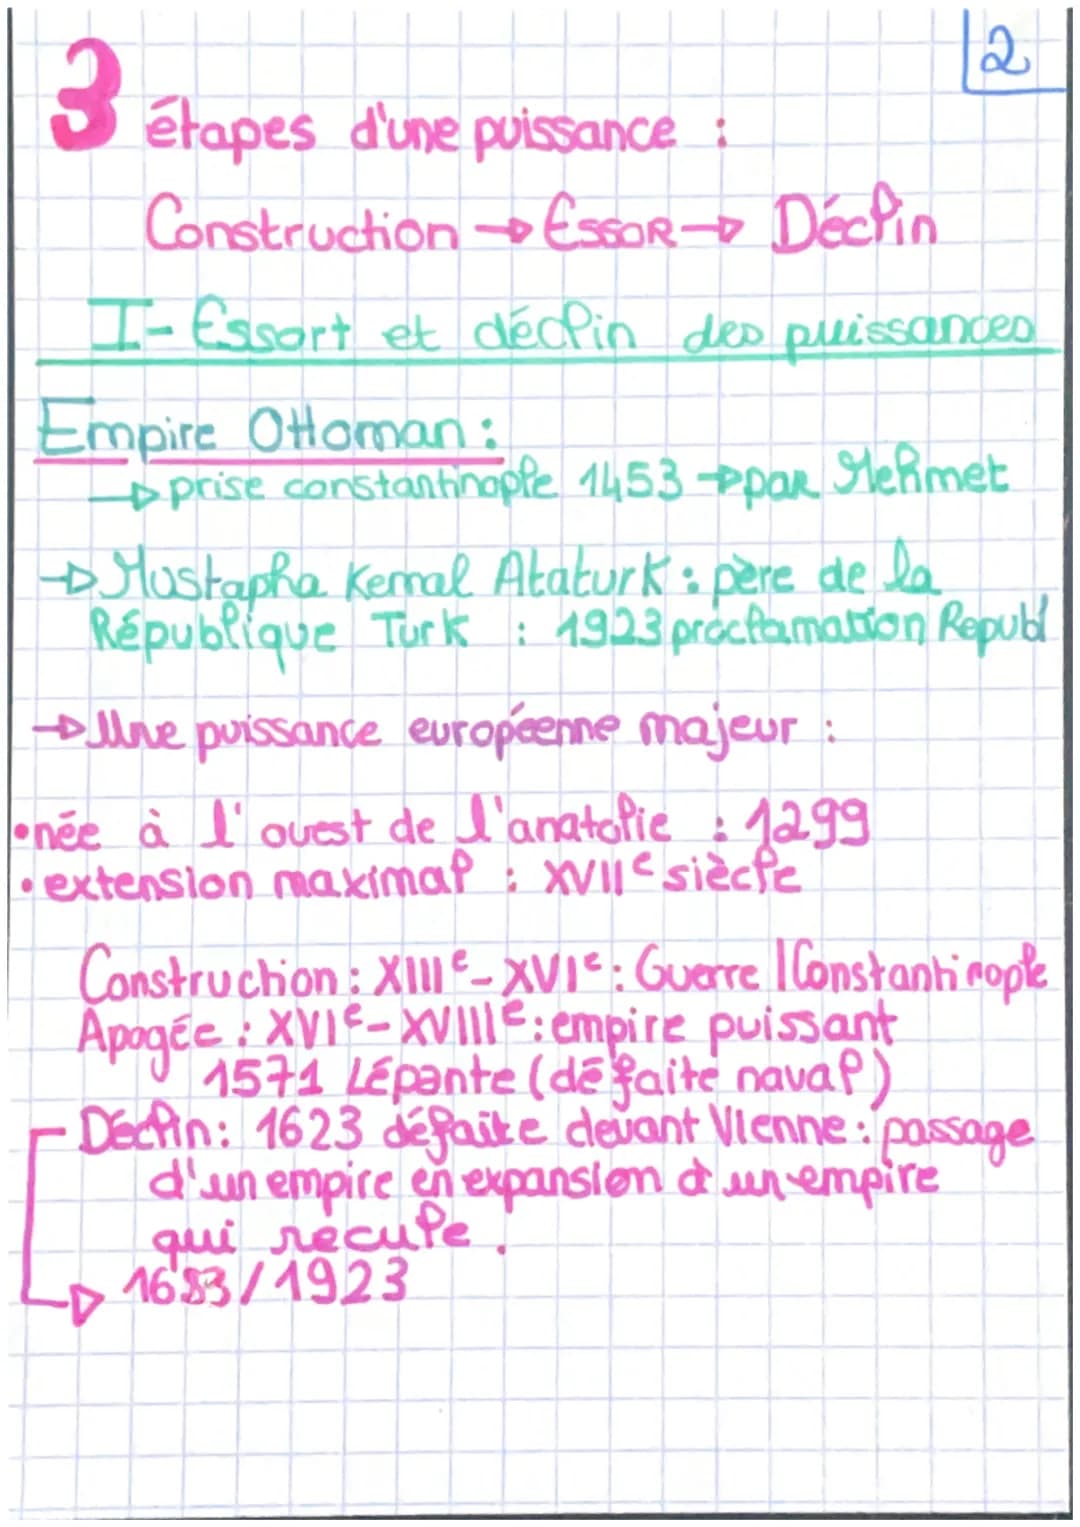 2
3 étapes d'une puissance :
Construction → Essor → Déclin
I- Essort et déclin des puissances
Empire Ottoman :
→ prise constantinople 1453 → par Mehmet
→ Mustapha Kemal Ataturk : père de la
République Turk : 1923 proclamation Republ
→ Une puissance européenne majeur :
• née à l'ouest de l'anatolie : 1299
• extension maximal : XVIIe siècle
Construction : XIIIe - XVIe : Guerre | Constantinople
Apogée : XVIe - XVIIIe : empire puissant
1571 Lépante (défaite naval)
Déclin : 1623 défaite devant Vienne : passage
d'un empire en expansion à un empire
qui recule.
→ 1683 / 1923